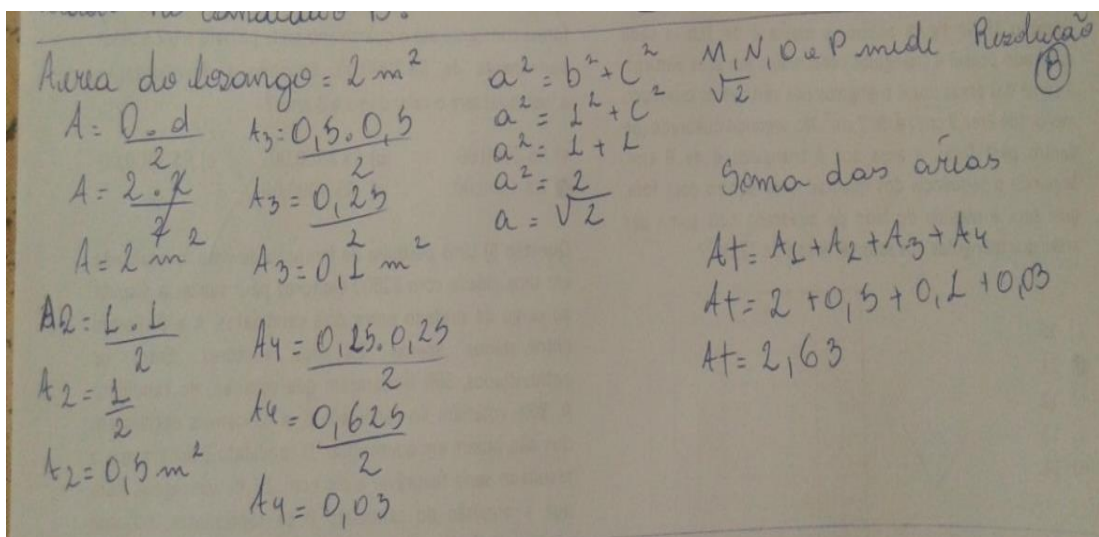 Aerea do losango = 2 m²
A = D . d / 2
A = 2 . 2 / 2
A = 2 m²
A2 = 1 . 1 / 2
A2 = 1 / 2
A2 = 0,5 m²
A3 = 0,5 . 0,5 / 2
A3 = 0,25 / 2
A3 = 0,1 m²
A4 = 0,25 . 0,25 / 2
A4 = 0,625 / 2
A4 = 0,03
a² = b² + c²
a² = 1² + c²
a² = 1 + 1
a² = 2
a = √2
M, N, O e P mede
√2
Resolução
B
Soma das aréas
At = A1 + A2 + A3 + A4
At = 2 + 0,5 + 0,1 + 0,03
At = 2,63